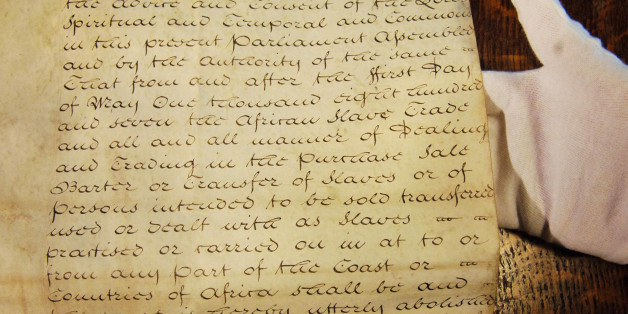 the Advice and Consent of the Lords
Spiritual and Temporal and Commons
in this present Parliament Assembled
and by the Authority of the same
That from and after the First Day
of May One thousand eight hundred
and seven the African Slave Trade
and all and all manner of Dealing
and Trading in the Purchase Sale
Barter or Transfer of Slaves or of
Persons intended to be sold transferred
used or dealt with as Slaves
practised or carried on in at to or
from any part of the Coast or
Countries of Africa shall be and
is hereby utterly abolished